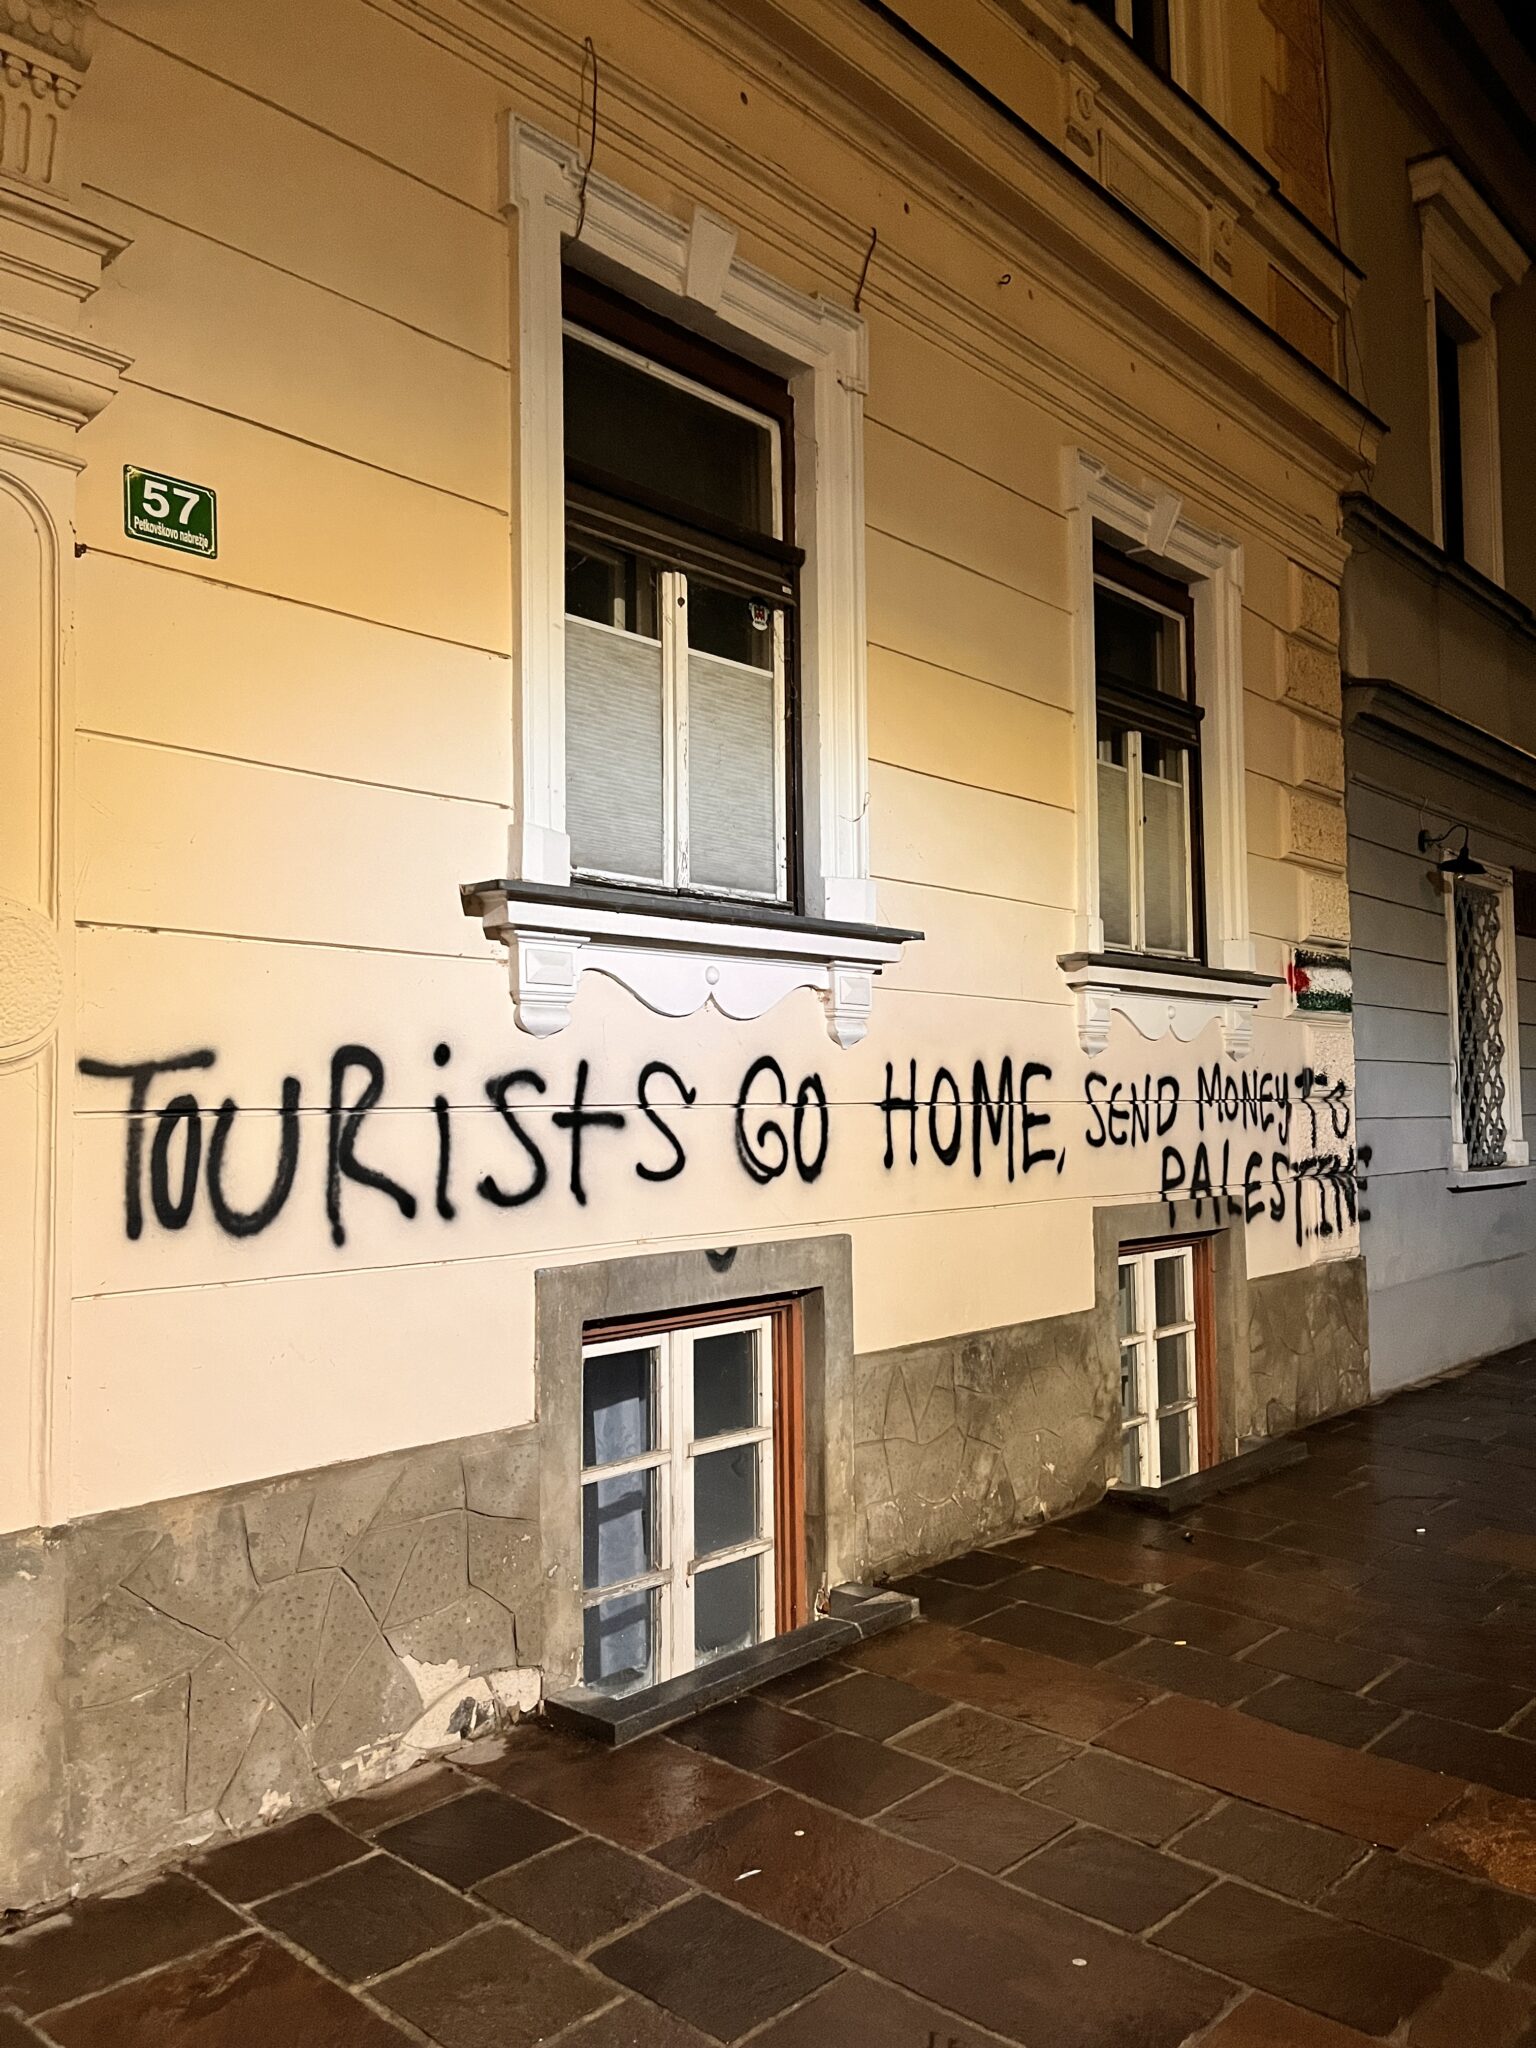 57
Petkovškovo nabrežje
TOURiStS GO HOME, SEND MONEY TO
PALESTINE